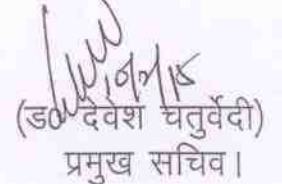 (डा० देवेश चतुर्वेदी)
प्रमुख सचिव।